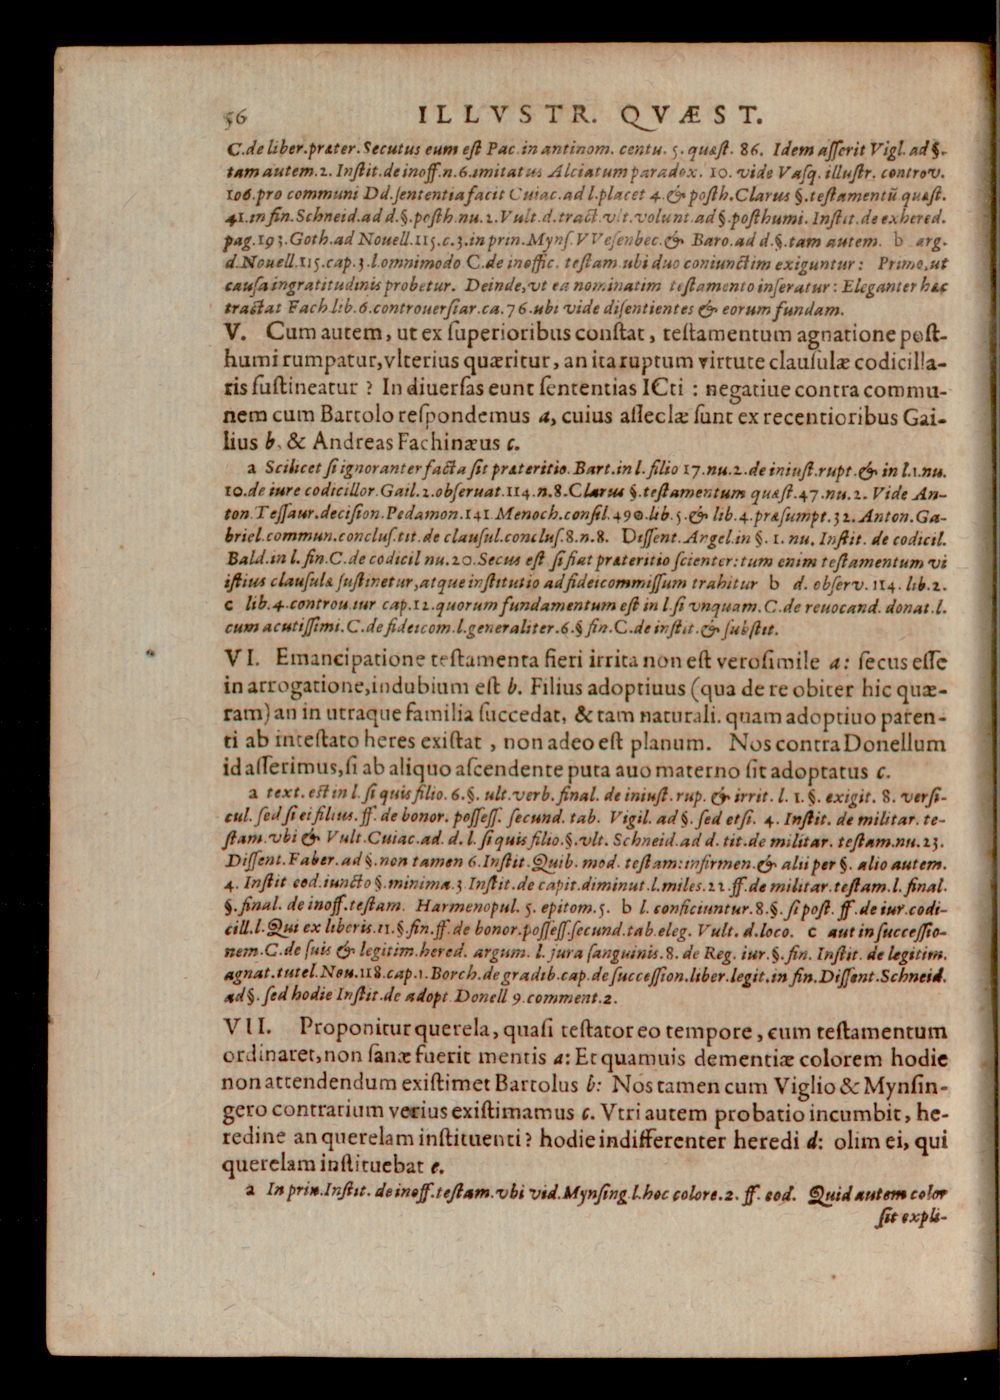 56 ILLVSTR. QVÆST.
C. de liber. præter. Secutus eum eſt Pac. in antinom. centu. 5. quæſt. 86. Idem aſſerit Vigl. ad §.
tam autem. 2. Inſtit. de inoff. n. 6. imitatus Alciatum paradox. 10. vide Vaſq. illuſtr. controv.
106. pro communi Dd. ſententia facit Cuiac. ad l. placet 4. & poſth. Clarus §. teſtamentũ quæſt.
41. in fin. Schneid. ad d. §. poſth. nu. 2. Vult. d. tract. vlt. volunt. ad §. poſthumi. Inſtit. de exhered.
pag. 193. Goth. ad Nouell. 115. c. 3. in prin. Mynſ. VVeſenbec. & Baro. ad d. §. tam autem. b arg.
d. Nouell. 115. cap. 3. l. omnimodo C. de inoffic. teſtam. ubi duo coniunctim exiguntur: Primo, ut
cauſa ingratitudinis probetur. Deinde, vt ea nominatim teſtamento inſeratur: Eleganter hæc
tractat Fach lib. 6. controuerſiar. ca. 76. ubi vide diſentientes & eorum fundam.
V. Cum autem, ut ex ſuperioribus conſtat, teſtamentum agnatione poſt-
humi rumpatur, vlterius quæritur, an ita ruptum virtute clauſulæ codicilla-
ris ſuſtineatur? In diuerſas eunt ſententias ICti: negatiue contra commu-
nem cum Bartolo reſpondemus a, cuius aſſeclæ ſunt ex recentioribus Gai-
lius b. & Andreas Fachinæus c.
a Scilicet ſi ignoranter facta ſit præteritio. Bart. in l. filio 17. nu. 2. de iniuſt. rupt. & in l. 1. nu.
10. de iure codicillor. Gail. 2. obſeruat. 114. n. 8. Clarus §. teſtamentum quæſt. 47. nu. 2. Vide An-
ton. Teſſaur. deciſion. Pedamon. 141 Menoch. conſil. 490. lib. 5. & lib. 4. præſumpt. 32. Anton. Ga-
briel. commun. concluſ. tit. de clauſul. concluſ. 8. n. 8. Diſſent. Angel. in §. 1. nu. Inſtit. de codicil.
Bald. in l. fin. C. de codicil nu. 20. Secus eſt ſi fiat præteritio ſcienter: tum enim teſtamentum vi
iſtius clauſulæ ſuſtinetur, atque inſtitutio ad fideicommiſſum trahitur b d. obſerv. 114. lib. 2.
c lib. 4. controu. iur cap. 12. quorum fundamentum eſt in l. ſi vnquam. C. de reuocand. donat. l.
cum acutiſſimi. C. de fideicom. l. generaliter. 6. § fin. C. de inſtit. & ſubſtit.
VI. Emancipatione teſtamenta fieri irrita non eſt veroſimile a: ſecus eſſe
in arrogatione, indubium eſt b. Filius adoptiuus (qua de re obiter hic quæ-
ram) an in utraque familia ſuccedat, & tam naturali. quam adoptiuo paren-
ti ab inteſtato heres exiſtat, non adeo eſt planum. Nos contra Donellum
id aſſerimus, ſi ab aliquo aſcendente puta auo materno ſit adoptatus c.
a text. est in l. ſi quis filio. 6. §. ult. verb. final. de iniuſt. rup. & irrit. l. 1. §. exigit. 8. verſi-
cul. ſed ſi ei filius. ff. de bonor. poſſeſſ. ſecund. tab. Vigil. ad §. ſed etſi. 4. Inſtit. de militar. te-
ſtam. vbi & Vult. Cuiac. ad. d. l. ſi quis filio. §. vlt. Schneid. ad d. tit. de militar. teſtam. nu. 23.
Diſſent. Faber. ad §. non tamen 6. Inſtit. Quib. mod. teſtam: infirmen. & alii per §. alio autem.
4. Inſtit eod. iuncto §. minima. 3 Inſtit. de capit. diminut. l. miles. 22. ff. de militar. teſtam. l. final.
§. final. de inoff. teſtam. Harmenopul. 5. epitom. 5. b l. conficiuntur. 8. §. ſi poſt. ff. de iur. codi-
cill. l. Qui ex liberis. 11. §. fin. ff. de bonor. poſſeſſ. ſecund. tab. eleg. Vult. d. loco. c aut in ſucceſſio-
nem. C. de ſuis & legitim. hered. argum. l. jura ſanguinis. 8. de Reg. iur. §. fin. Inſtit. de legitim.
agnat. tutel. Nou. 118. cap. 1. Borch. de gradib. cap. de ſucceſſion. liber. legit. in fin. Diſſent. Schneid.
ad §. ſed hodie Inſtit. de adopt Donell 9. comment. 2.
VII. Proponitur querela, quaſi teſtator eo tempore, cum teſtamentum
ordinaret, non ſanæ fuerit mentis a: Et quamuis dementiæ colorem hodie
non attendendum exiſtimet Bartolus b: Nos tamen cum Viglio & Mynſin-
gero contrarium verius exiſtimamus c. Vtri autem probatio incumbit, he-
redi ne an querelam inſtituenti? hodie indifferenter heredi d: olim ei, qui
querelam inſtituebat e.
a In prin. Inſtit. de inoff. teſtam. vbi vid. Mynſing. l. hoc colore. 2. ff. eod. Quid autem color
ſit expli-